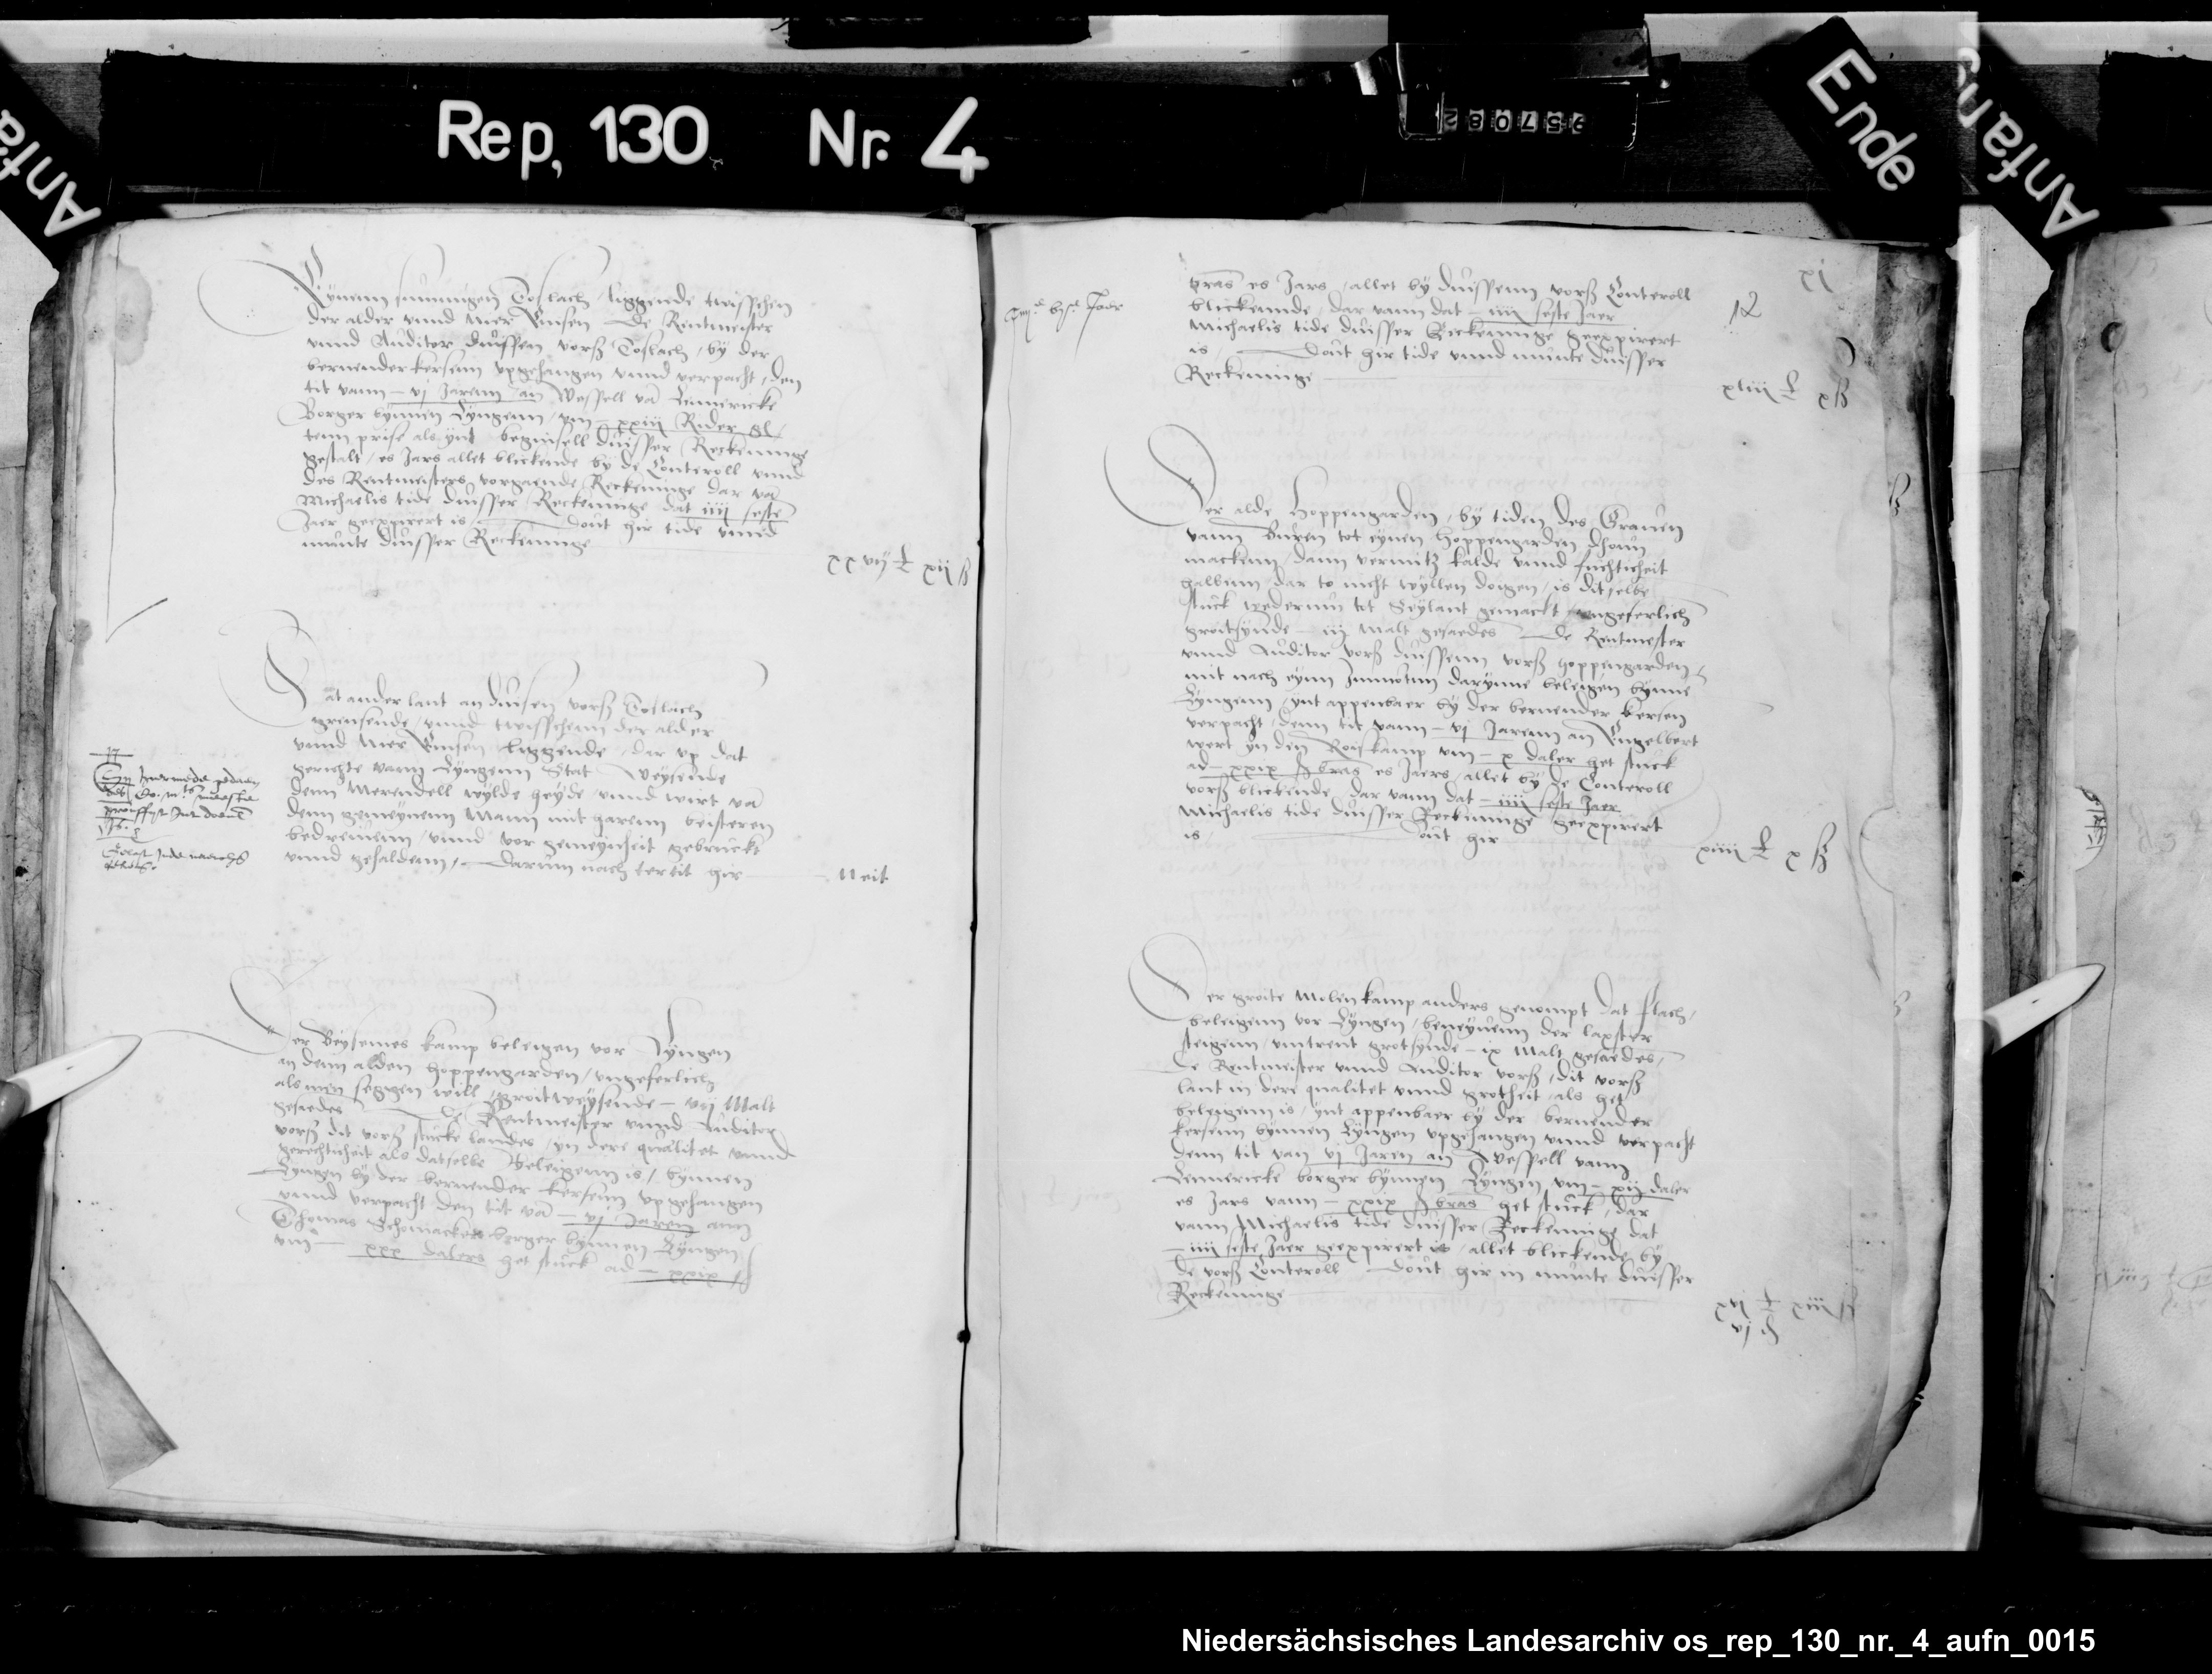 Rep. 130 Nr. 4
957082
Ende
Anfang
Eynenn sunnigen Toslach / liggende twisschen
der alder unnd nier Emsen De Rentmeister
unnd Auditor dussen vorß Toslach / by der
bernender kersenn upgehangen unnd verpacht / den
tit vann – vj Jarenn / an Wessell vā Lennericke
Borger bynnen Lyngenn / um – xxiiij Rider gl /
tenn prise als ynt beginsell duisser Reckeninge
gestalt / es Jars allet blickende by de Conteroll unnd
des Rentmeisters vorgaende Reckeninge dar vā
Michaelis tide duisser Reckeninge dat iiij seste
Jaer geexpirert is Dout hir tide unnd
munte duisser Reckeninge
xxvij £ xij ß
Dat ander lant an duisen vorß Toslach
grensende / unnd twisschenn der alder
unnd nier Emsen liggende / dar up dat
gerichte vann Lyngenn Stat Weysende
denn Merendell wylde heyde / unnd wirt vā
denn gemeynenn Mann mit harenn beisteren
bedreuenn / unnd vor gemeynheit gebruckt
unnd gehaldenn / Darum nach tertit hir Neit
Der Beysemes kamp beleigen vor Lyngen
an denn alden hoppengarden / ungeferlich
als men seggen will / groit weysende – vij Malt
gesaedes De Rentmeister unnd Auditor
vorß dit vorß stucke landes / yn dere qualitet unnd
gerechticheit als datselbe beleigenn is / bynnen
Lyngen by der bernender kersenn upgehangen
unnd verpacht den tit vā – vj Jaren ann
Thomas Schomacker borger bynnen Lyngen
um – xxx dalers het stuck ad – xxix ß
xj
12
bras es Jars / allet by duissenn vorß Conteroll
blickennde / dar vann dat – iiij seste Jaer
Michaelis tide duisser Reckeninge geexpirert
is Dout hir tide unnd munte duisser
Reckeninge
xliij £ x ß
Der alde Hoppengarden / by tiden des Grauen
vann Buren tot eynen hoppengarden dhoun
mackenn / dann vermitz kalde unnd fuchticheit
halbenn dar to nicht wyllen doigen / is ditselbe
stuck wederum tot Seylant gemackt / ungeferlich
groitsynde – iij Malt gesaedes De Rentmester
unnd Auditor vorß duissenn vorß hoppengarden /
mit nach eynn darynne beleigen bynnē
Lyngenn / ynt appenbaer by der bernender kersen
verpacht / denn tit vann – vj Jarenn an Engelbert
wert yn den Roiskamp um – x daler het stuck
ad – xxix ß bras es Jaers / allet by de Conteroll
vorß blickende / dar vann dat – iiij seste Jaer
Michaelis tide duisser Reckeninge geexpirert
is Dout hir
xiiij £ x ß
Der groite Molenkamp anders genompt dat flach /
beleigenn vor Lyngen / beneyuenn der laxster
steigenn / umtrent grotsynde – ix Malt gesaedes /
De Rentmeister unnd Auditor vorß / dit vorß
lant in dere qualitet unnd grotheit / als het
beleigenn is / ynt appenbaer by der bernender
kersenn bynnen Lyngen upgehangen unnd verpacht
denn tit van vj Jaren an Wessell vann
Lennericke borger bynnen Lyngen um – xij daler
es Jars vann – xxix ß bras het stuck / dar
vann Michaelis tide duisser Reckeninge dat
– iiij seste Jaer geexpirert is / allet blickende by
de vorß Conteroll Dout hir in munte duisser
Reckeninge
vj
Niedersächsisches Landesarchiv os_rep_130_nr._4_aufn_0015